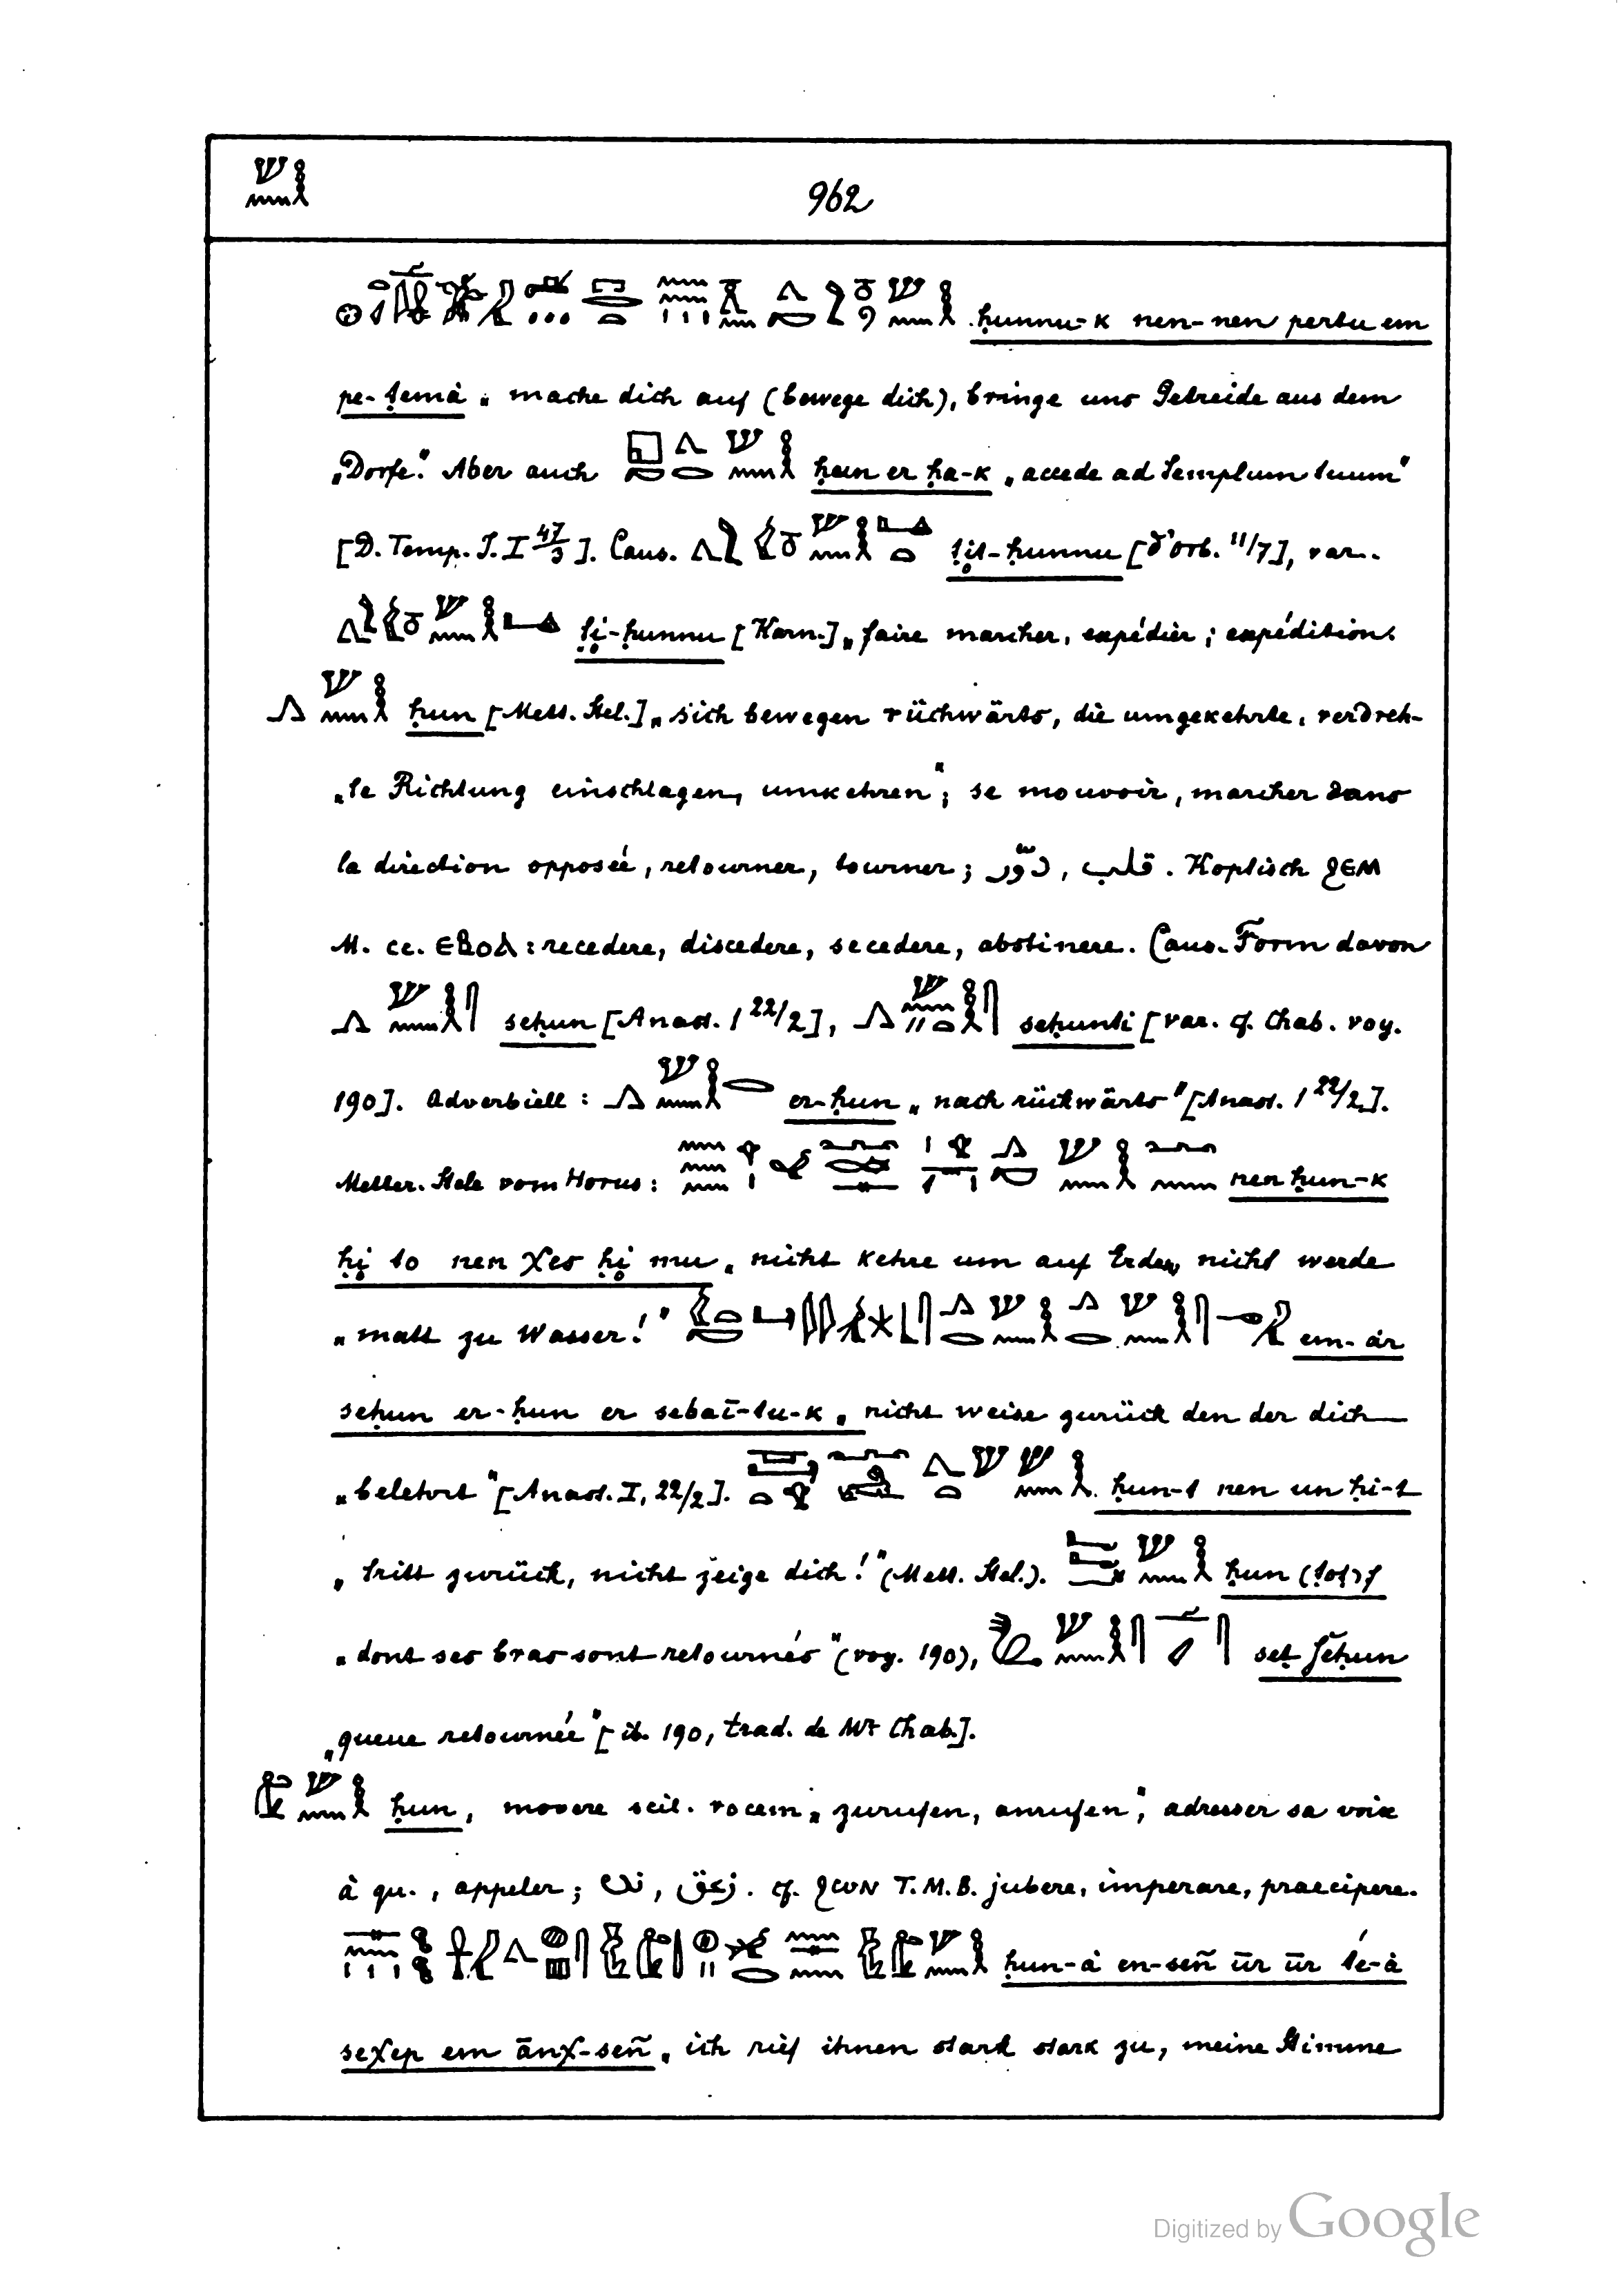 962
ḥunnu-k nen-nen pertu em
pe-ṭemȧ „ mache dich auf (bewege dich), bringe uns Getreide aus dem
„Dorfe.“ Aber auch ḥun er ḥa-k „accede ad templum tuum“
[D. Temp. J. I 47/3]. Caus. ṭit-ḥunnu [d'Orb. 11/7], var.
ṭi-ḥunnu [Karn.] „faire marcher, expédier; expédition.
ḥun [Mett. Stel.] „sich bewegen rückwärts, die umgekehrte, verdreh-
„te Richtung einschlagen, umkehren“; se mouvoir, marcher dans
la direction opposée, retourner, tourner; دوّر, قلب. Koptisch ϨЄΜ
M. cc. ЄΒΟλ: recedere, discedere, secedere, abstinere. Caus. Form davon
seḥun [Anast. I 22/2], seḥunti [var. cf. Chab. voy.
190]. Adverbiell: er-ḥun „nach rückwärts“ [Anast. I 22/2].
Metter. Stele vom Horus: nen ḥun-k
ḥi to nen χes ḥi mu „nicht kehre um auf Erden, nicht werde
„matt zu Wasser!“ em-ȧr
seḥun er-ḥun er sebaī-tu-k „nicht weise zurück den der dich
„belehrt“ [Anast. I, 22/2]. ḥun-t nen un ḥi-t
„tritt zurück, nicht zeige dich!“ (Mett. Stel.). ḥun (ṭoṭ)f
„dont ses bras sont retournés“ (voy. 190), seṭ seḥun
„queue retournée“ [ib. 190, trad. de Mr Chab.].
ḥun, movere scil. vocem „zurufen, anrufen“; adresser sa voix
à qu., appeler; نده, زعّق. cf. ϨωΝ T. M. B. jubere, imperare, praecipere.
ḥun-ȧ en-señ ūr ūr té-ȧ
seχep em ānχ-señ „ich rief ihnen stark stark zu, meine Stimme
Digitized by Google